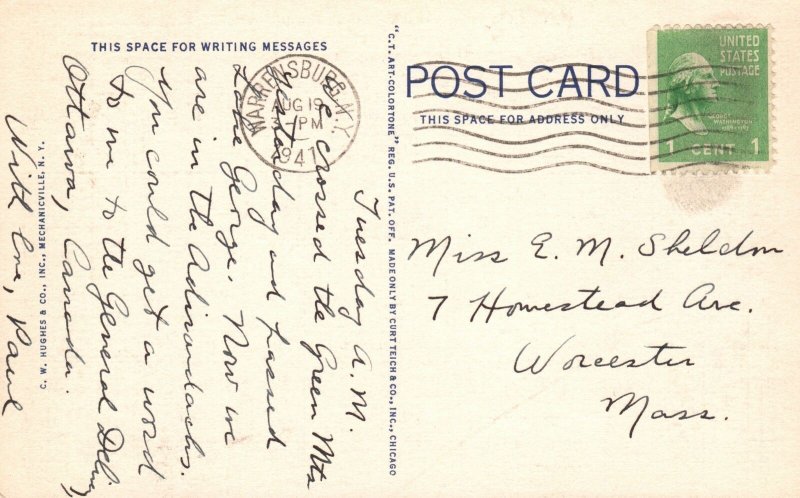 THIS SPACE FOR WRITING MESSAGES
Tuesday A.M.
We crossed the Green Mts
yesterday and passed
Lake George. Now we
are in the Adirondacks.
You could get a word
to me to the General Delivery,
Ottawa, Canada.
With love, Paul
C. W. HUGHES & CO., INC., MECHANICVILLE, N. Y.
WARRENSBURG, N.Y.
AUG 19
PM
1941
"C.T. ART-COLORTONE" REG. U.S. PAT. OFF. MADE ONLY BY CURT TEICH & CO., INC., CHICAGO
POST CARD
THIS SPACE FOR ADDRESS ONLY
UNITED
STATES
POSTAGE
GEORGE
WASHINGTON
1 CENT 1
Miss E. M. Sheldon
7 Homestead Ave.
Worcester
Mass.